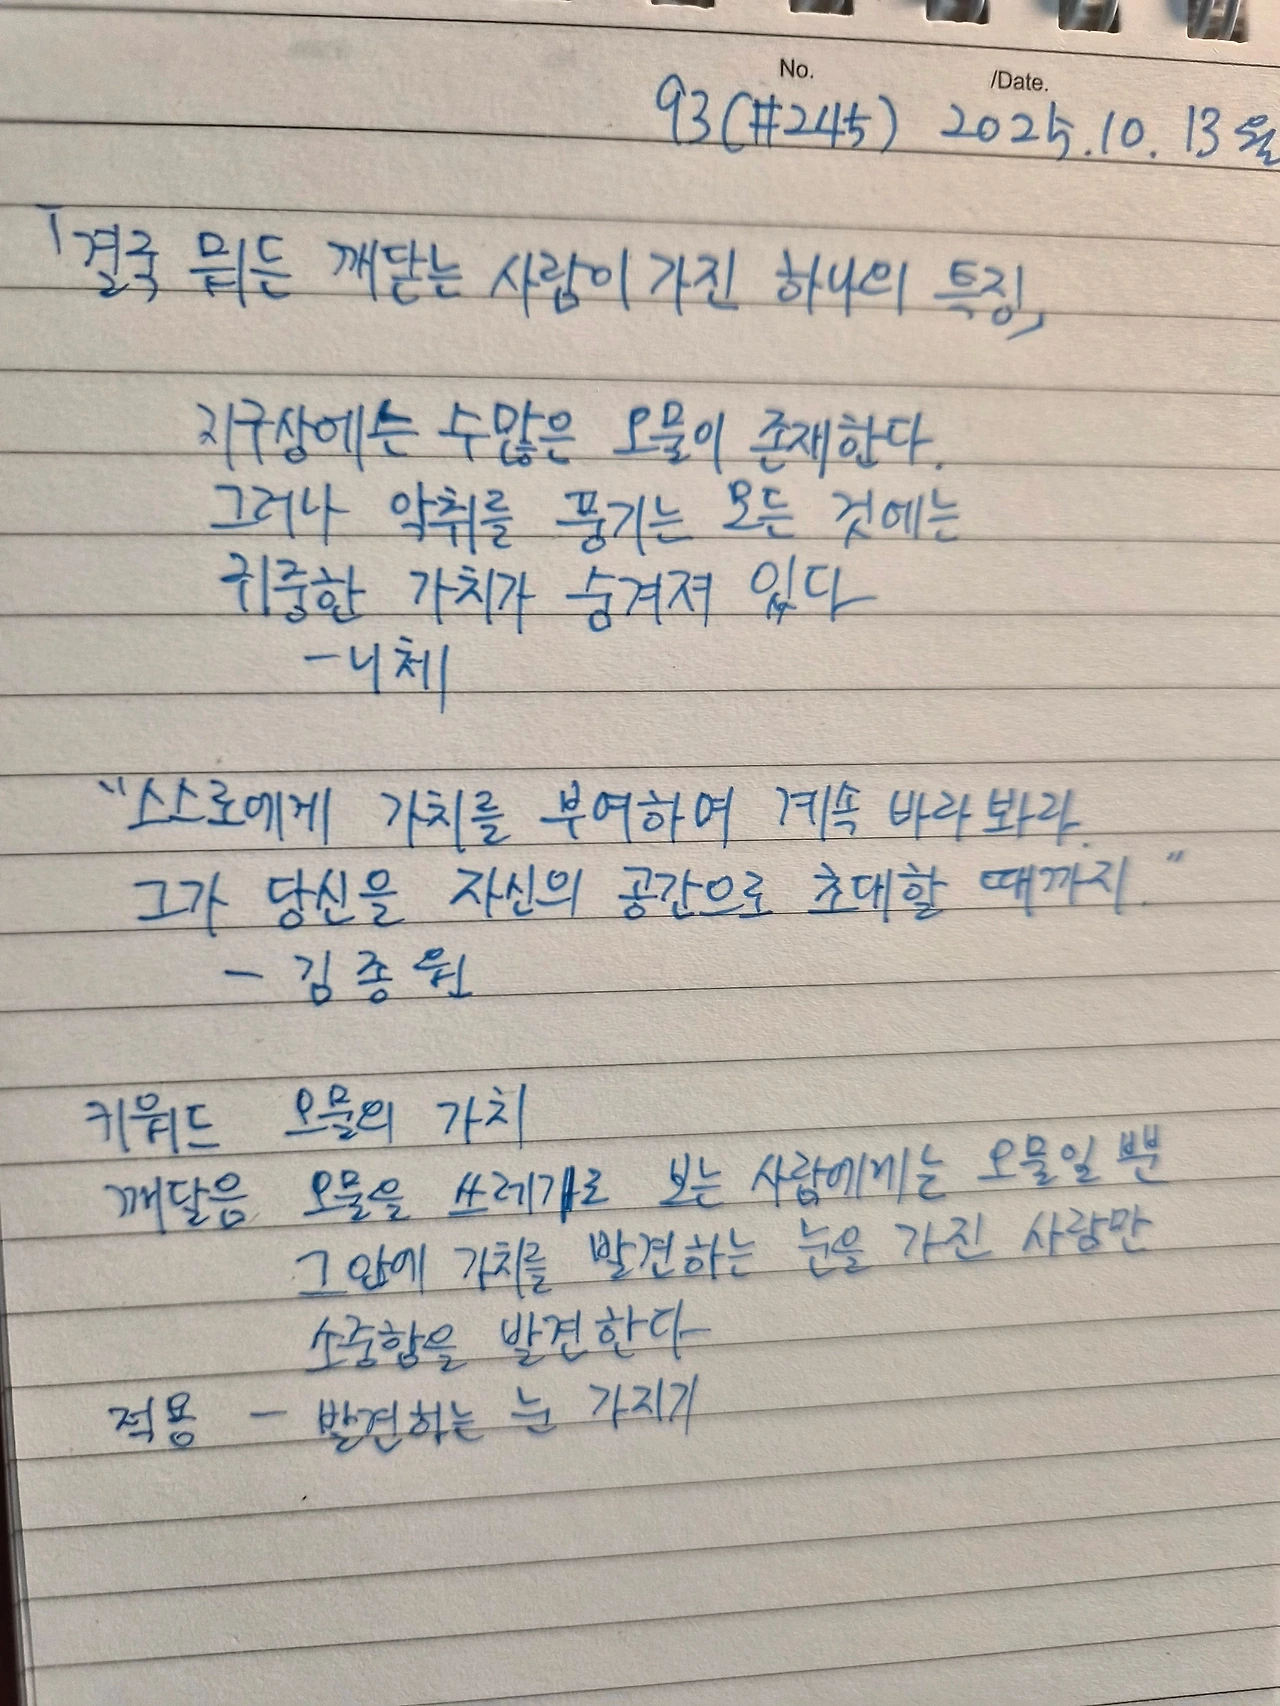 No. /Date.
93(#245) 2025.10.13 월
「결국 뭐든 깨닫는 사람이 가진 하나의 특징」
지구상에는 수많은 오물이 존재한다.
그러나 악취를 풍기는 모든 것에는
귀중한 가치가 숨겨져 있다
-니체
"스스로에게 가치를 부여하여 계속 바라봐라.
그가 당신을 자신의 공간으로 초대할 때까지."
- 김종원
키워드 오물의 가치
깨달음 오물을 쓰레기로 보는 사람에게는 오물일 뿐
그 안에 가치를 발견하는 눈을 가진 사람만
소중함을 발견한다
적용 - 발견하는 눈 가지기